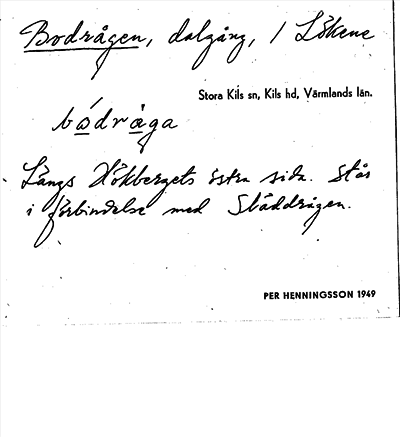 Bodrågen, dalgång, / Lökene
Stora Kils sn, Kils hd, Värmlands län.
bo̱dråga
Längs Hökbergets östra sida. Står
i förbindelse med Släddrågen.
PER HENNINGSSON 1949